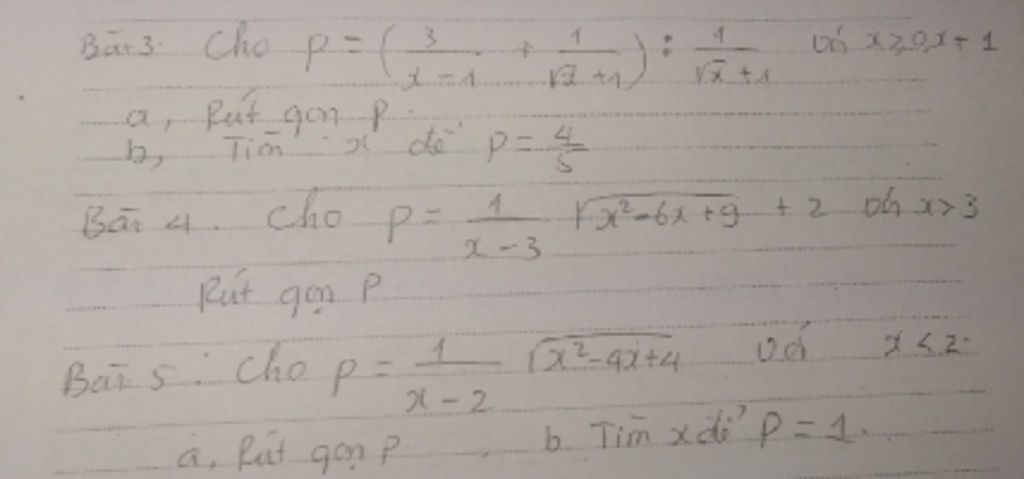 Bài 3. Cho P = (3/(x-1) + 1/(√x+1)) : 1/(√x+1) với x ≥ 0, x ≠ 1
a, Rút gọn P.
b, Tìm x để P = 4/5
Bài 4. Cho P = 1/(x-3) √(x²-6x+9) + 2 với x > 3
Rút gọn P
Bài 5. Cho P = 1/(x-2) √(x²-4x+4) với x < 2.
a, Rút gọn P. b. Tìm x để P = 1.